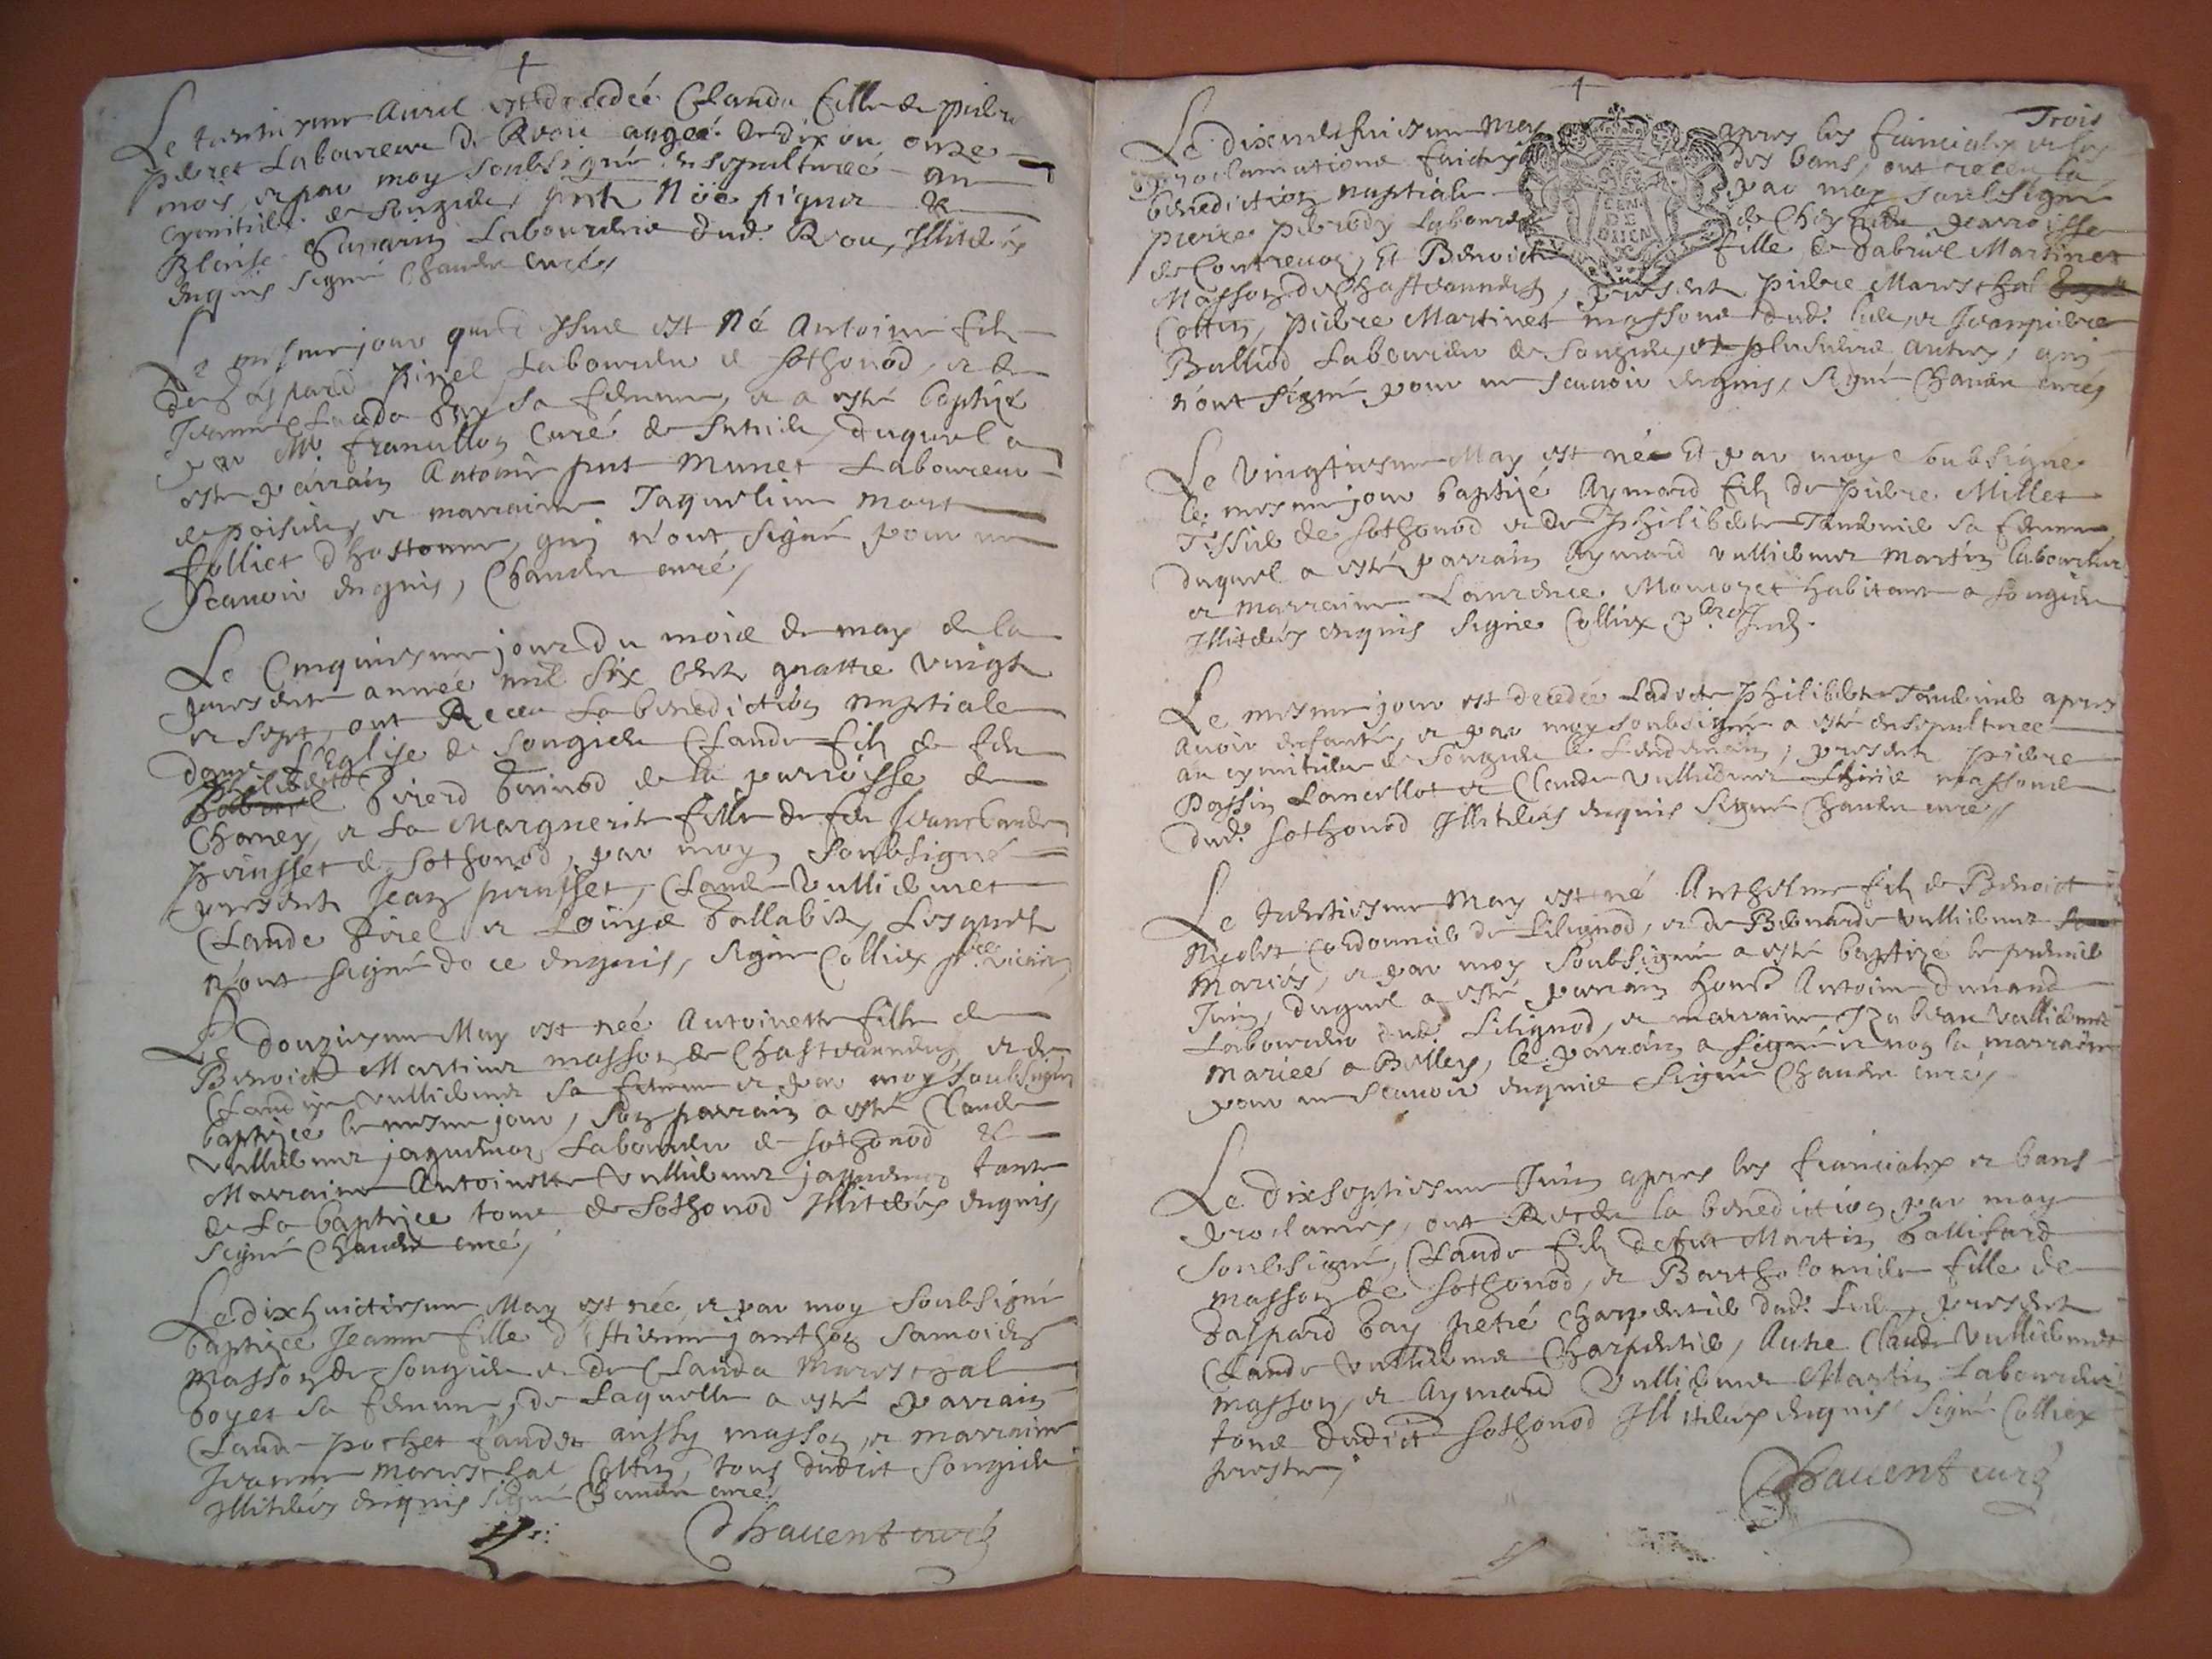 Le trentiesme Avril est decedée Clauda fille de pierre
perret Laboureur de Rvou aagée de dix ou onze
mois, et par moy soubsigné ensepulturée au
cymitiere de Songieu, pnts Noë pignier &
Blaise Laboureurs dud. Rvou, Illiterés
enquis signé Chavent curé,
Le mesme jour que dessus est Né Antoine fils
de Gaspard pirel Laboureur de Sothonod, et de
Jeanne Clauda sa femme, et a esté baptizé
par Mr. francillon Curé de duquel a
esté parrain Antoine Munet Laboureur
de poisieu, et marraine Jaqueline mart
folliet d'hostonne, qui n'ont signé pour ne
scavoir enquis, Chavent curé,
Le Cinquiesme jour du mois de may de la
presente année mil six cents quattre vingt
et sept, ont Receu La benediction nuptiale
dans L'Eglise de Songieu Claude fils de feu
philibert de la parroisse de
Chaney, et La Marguerite fille de feu Jeanclaude
pousset de Sothonod, par moy soubsigné
presents Jean pousset, Claude Vulliermet
Claude pirel et Louyse Ballabit, Lesquels
n'ont signé de ce enquis, signé Colliex pbre vicaire,
Le douziesme May est née Antoinette fille de
Benoict Martinet masson de Chasteauneuf et de
Claudine Vulliermet sa femme et par moy soubsigné
baptizée le mesme jour, son parrain a esté Claude
Vulliermet jaquemoz Laboureur de Sothonod &
Marraine Antoinette Vulliermet jaquemoz tante
de La baptizée tous de Sothonod Illiterés enquis,
signé Chavent curé,
Le dixhuictiesme May est née et par moy soubsigné
baptizée Jeanne fille d'Estienne janthon Samoiens
Masson de Songieu et de Clauda Mareschal
boyet sa femme, de Laquelle a esté parrain
Claude pochet fauder aussy masson, et marraine
Jeanne Mareschal Cottin, tous dudict Songieu
Illiterés enquis signé Chavent curé,
Chavent curé
Trois
Le dixneufviesme May apres les fiancialles et les
proclamations faictes des bans, ont receu la
benediction nuptiale par moy soubsigné
pierre Laboureur de parroisse
de Contrevoz, Et Benoicte fille de Gabriel Martinet
Masson de Chasteauneuf, presents pierre Mareschal
Cottin, pierre Martinet massons dud. lieu, et Jeanpierre
Balliod Laboureur de Songieu, et plusieurs autres, qui
n'ont signé pour ne scavoir enquis, signé Chavent curé,
Le Vingtiesme May est né Et par moy soubsigné
le mesme jour baptizé Aymard fils de pierre Millet
Tissier de Sothonod et de philiberte sa femme,
duquel a esté parrain Aymard Vulliermet Martin Laboureur
et marraine Laurence Moncozet habitante a Songieu
Illiterés enquis signé Colliex pbre
Le mesme jour est decedée Ladicte philiberte apres
avoir enfanté, et par moy soubsigné a esté ensepulturée
au cymitiere de Songieu le Lendemain, presents pierre
Passin Lancellot et Claude Vulliermet massons
dud. Sothonod Illiterés enquis signé Chavent curé,
Le trentiesme May est né Anthelme fils de Benoict
Nicolet Cordonnier de Lilignod, et de Bernarde Vulliermet
Mariés, et par moy soubsigné a esté baptizé le premier
Juin, duquel a esté parrain hon. Antoine dunand
Laboureur dud. Lilignod, et marraine Izabeau Vulliermet
Mariée a Belley, le parrain a signé et non la marraine
pour ne scavoir enquise signé Chavent curé,
Le dixseptiesme Juin apres les fiancialles et bans
proclamés, ont Receu la benediction par moy
soubsigné, Claude fils defeu Martin Ballifard
masson de Sothonod, et Bartholomiere fille de
Gaspard bay petré charpentier dud. Lieu, presents
Claude Vulliermet Charpentier, Autre Claude Vulliermet
masson, et Aymard Vulliermet Martin Laboureur
tous dudict Sothonod Illiterés enquis signé Colliex
prestre,
Chavent curé